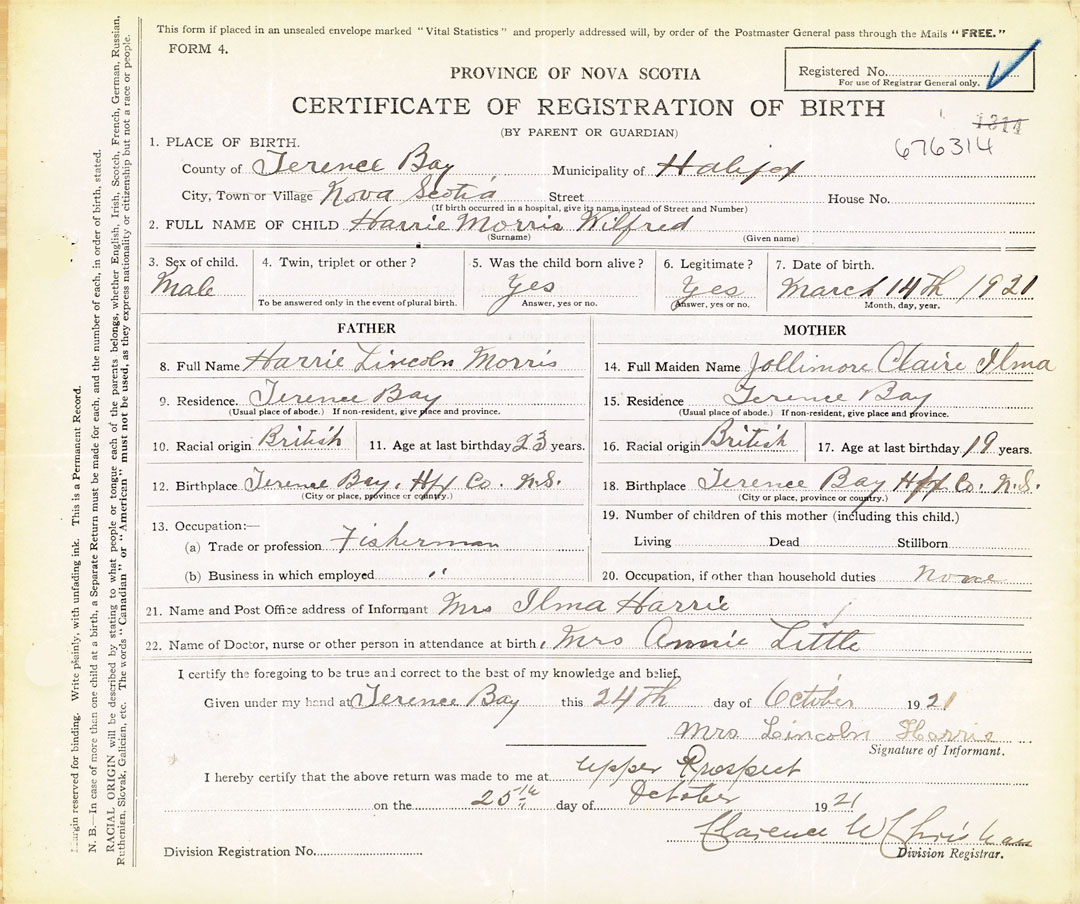 This form if placed in an unsealed envelope marked "Vital Statistics" and properly addressed will, by order of the Postmaster General pass through the Mails "FREE."
FORM 4.
Registered No.
For use of Registrar General only.
PROVINCE OF NOVA SCOTIA
CERTIFICATE OF REGISTRATION OF BIRTH
(BY PARENT OR GUARDIAN)
1314
676314
1. PLACE OF BIRTH.
County of Terence Bay Municipality of Halifax
City, Town or Village Nova Scotia Street House No.
(If birth occurred in a hospital, give its name, instead of Street and Number)
2. FULL NAME OF CHILD Harrie Morris Wilfred
(Surname) (Given name)
3. Sex of child. 4. Twin, triplet or other? 5. Was the child born alive? 6. Legitimate? 7. Date of birth.
Male Yes Yes March 14th 1921
To be answered only in the event of plural birth. Answer, yes or no. Answer, yes or no. Month, day, year.
FATHER
8. Full Name Harrie Lincoln Morris
9. Residence. Terence Bay
(Usual place of abode.) If non-resident, give place and province.
10. Racial origin British 11. Age at last birthday 23 years.
12. Birthplace Terence Bay, Hfx Co. N.S.
(City or place, province or country.)
13. Occupation:—
(a) Trade or profession Fisherman
(b) Business in which employed "
MOTHER
14. Full Maiden Name Jollimore Claire Ilma
15. Residence Terence Bay
(Usual place of abode.) If non-resident, give place and province.
16. Racial origin British 17. Age at last birthday 19 years.
18. Birthplace Terence Bay Hfx Co. N.S.
(City or place, province or country.)
19. Number of children of this mother (including this child.)
Living Dead Stillborn
20. Occupation, if other than household duties None
21. Name and Post Office address of Informant Mrs Ilma Harrie
22. Name of Doctor, nurse or other person in attendance at birth, Mrs Annie Little
I certify the foregoing to be true and correct to the best of my knowledge and belief,
Given under my hand at Terence Bay this 24th day of October 1921
Mrs Lincoln Harris
Signature of Informant.
I hereby certify that the above return was made to me at Upper Prospect
on the 25th day of October 1921
Clarence W
Division Registration No. Division Registrar.
Margin reserved for binding. Write plainly, with unfading ink. This is a Permanent Record.
N. B.—In case of more than one child at a birth, a Separate Return must be made for each, and the number of each, in order of birth, stated.
RACIAL ORIGIN will be described by stating to what people or tongue each of the parents belongs, whether English, Irish, Scotch, French, German, Russian,
Ruthenian, Slovak, Galician, etc. The words "Canadian" or "American" must not be used, as they express nationality or citizenship but not a race or people.